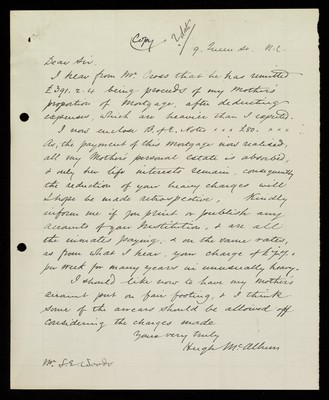 Copy
9. Queen Sq. W.C.
Dear Sir.
I hear from Mr. Cross that he has remitted
£391. 2. 4 being proceeds of my Mother's
proportion of Mortgage, after deducting
expenses, which are heavier than I expected.
I now enclose B. of E. Notes " " " £80. " " "
As, the payment of this Mortgage now realised,
all my Mother's personal estate is absorbed,
& only her life interests remain, consequently
the reduction of your heavy charges will
I hope be made retrospective. Kindly
inform me if you print or publish any
accounts of your Institution, & are all
the inmates paying, & on the same rates,
as from what I hear, your charge of
per week for many years is unusually heavy.
I should like now to have my Mother's
account put on fair footing, & I think
some of the arrears should be allowed off
considering the charges made
Yours very truly
Hugh McAllum
Mr. S.E.